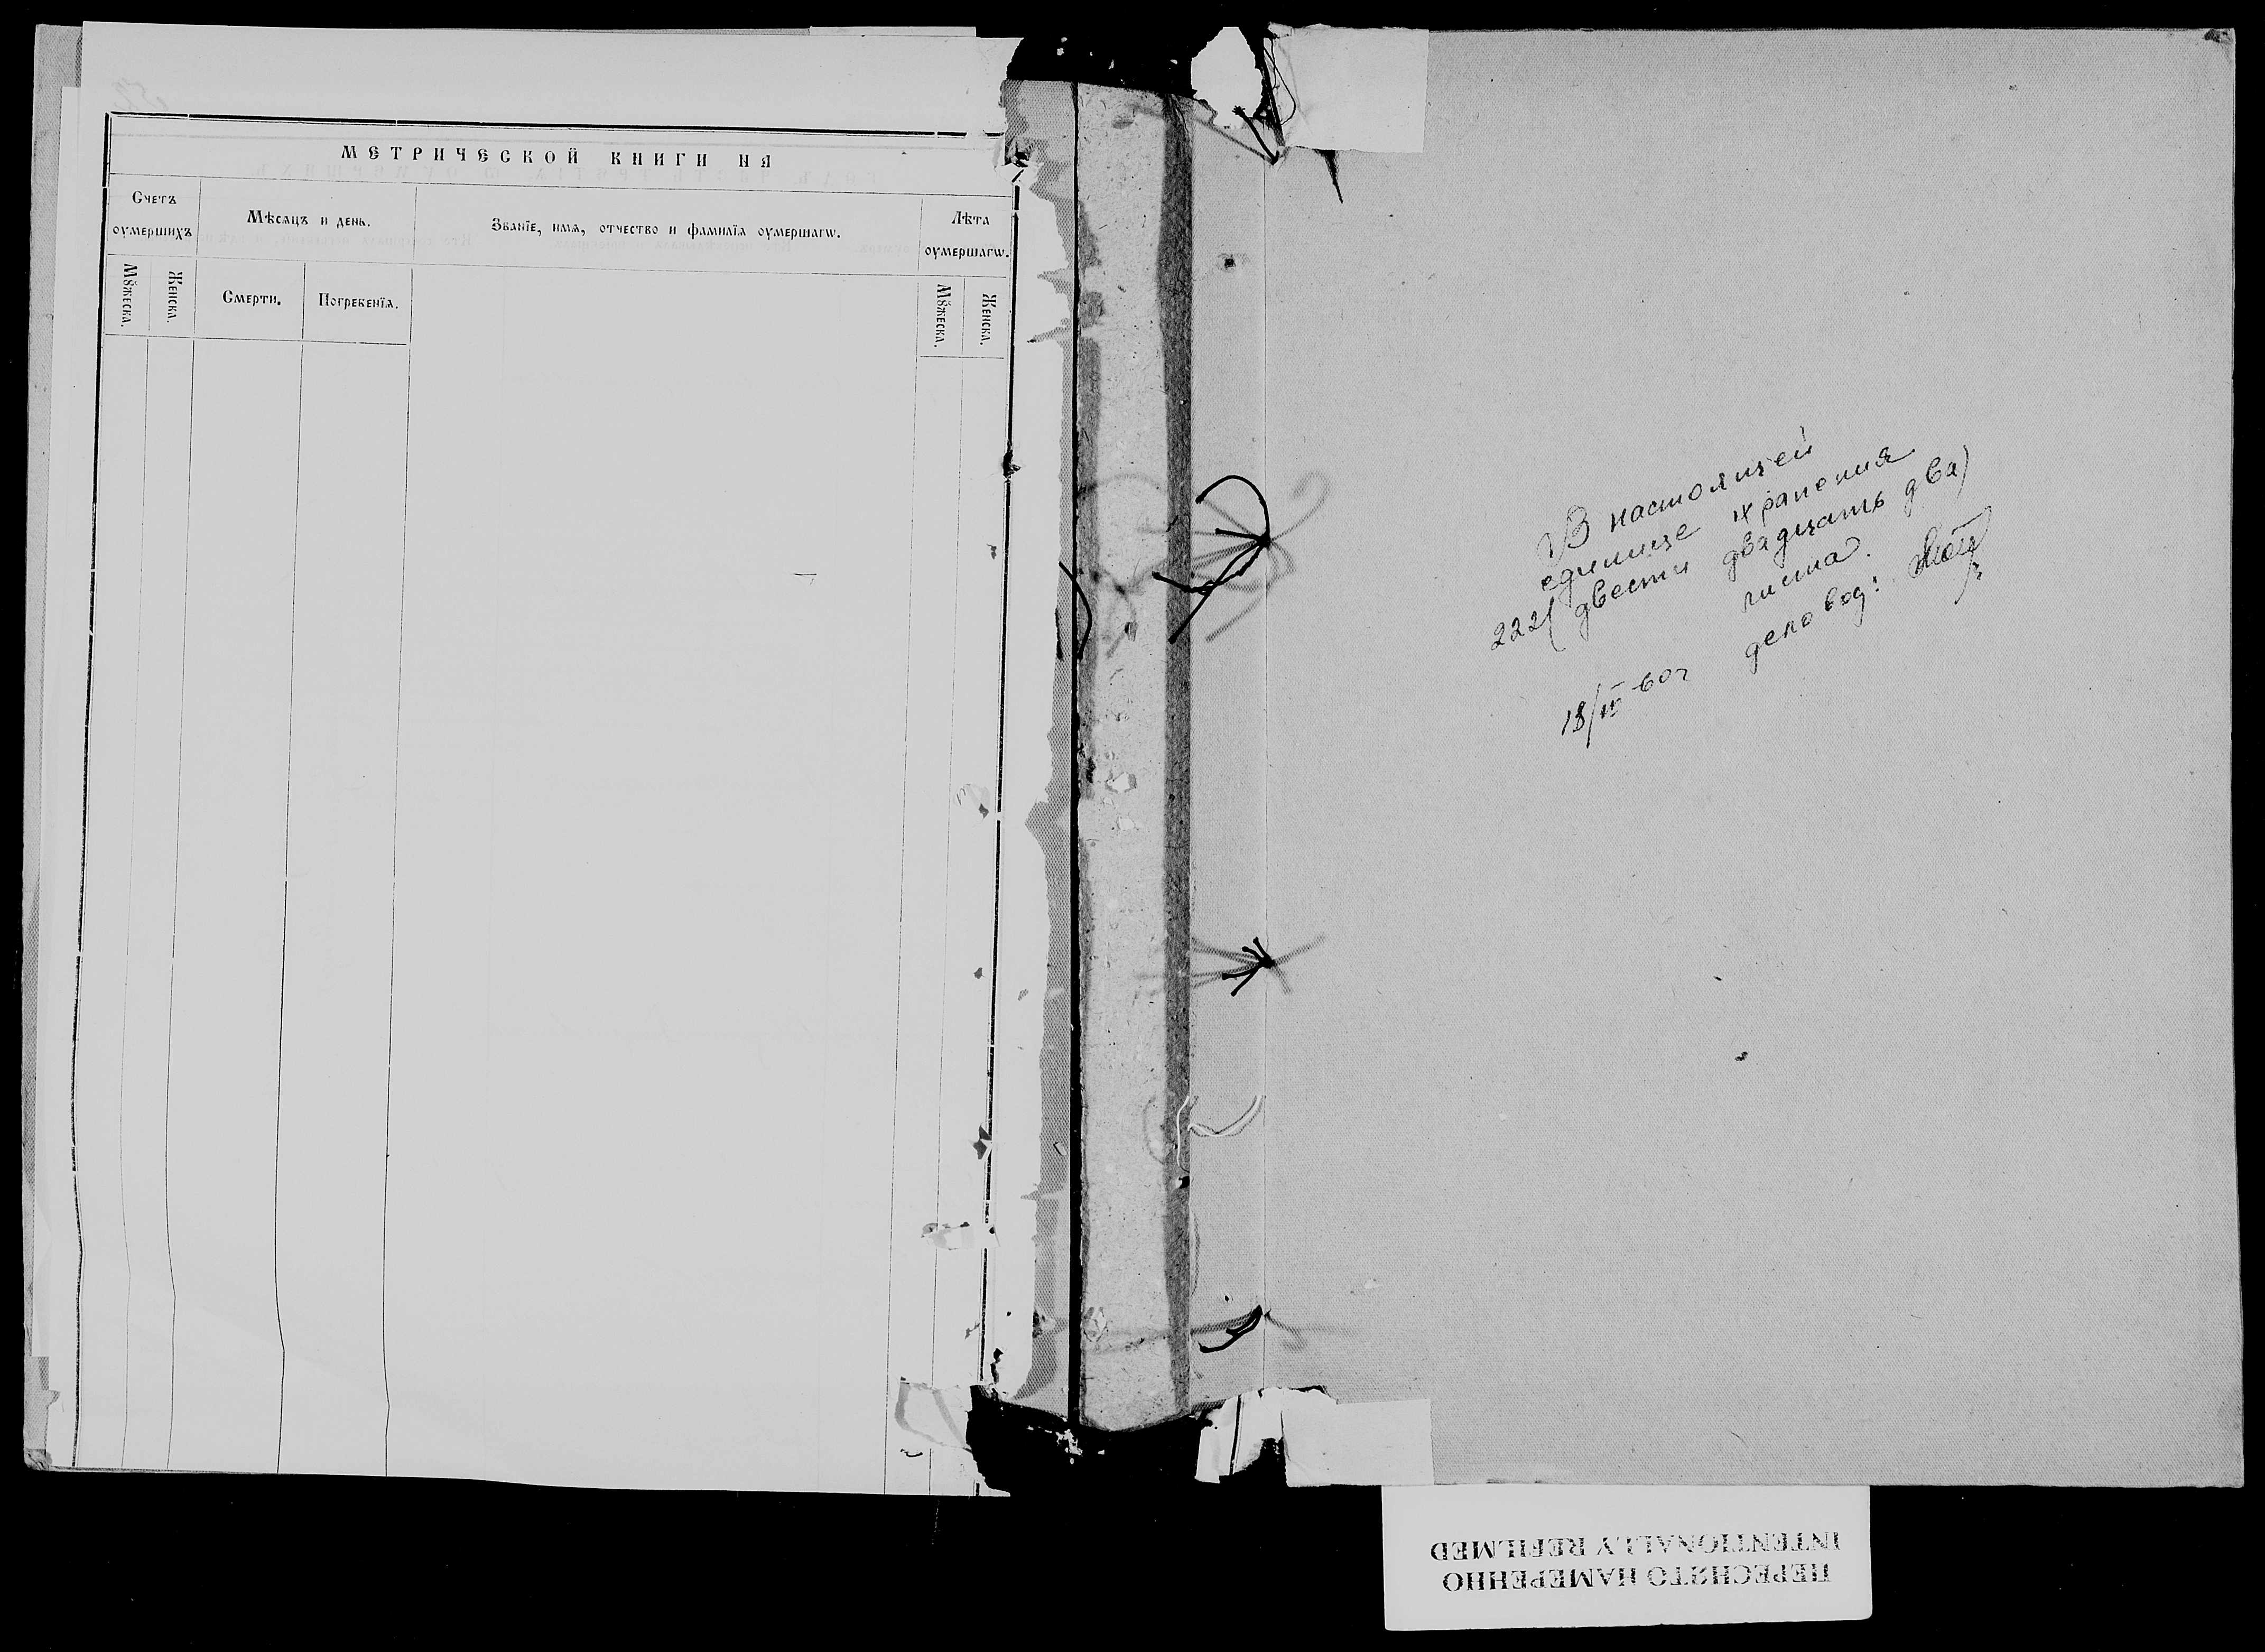 МЕТРИЧЕСКОЙ КНИГИ НА
Счетъ
оумершихъ
Мѣсяцъ и день.
Званїе, имѧ, отчество и фамилїа оумершагѡ.
Лѣта
оумершагѡ.
Мꙋжеска.
Женска.
Смерти.
Погребенїѧ.
Мꙋжеска.
Женска.
В настоящей
единице хранения
222 (двести двадцать два)
листа.
18/IV-60г деловод:
ПЕРЕСНЯТО НАМЕРЕННО
INTENTIONALLY REFILMED